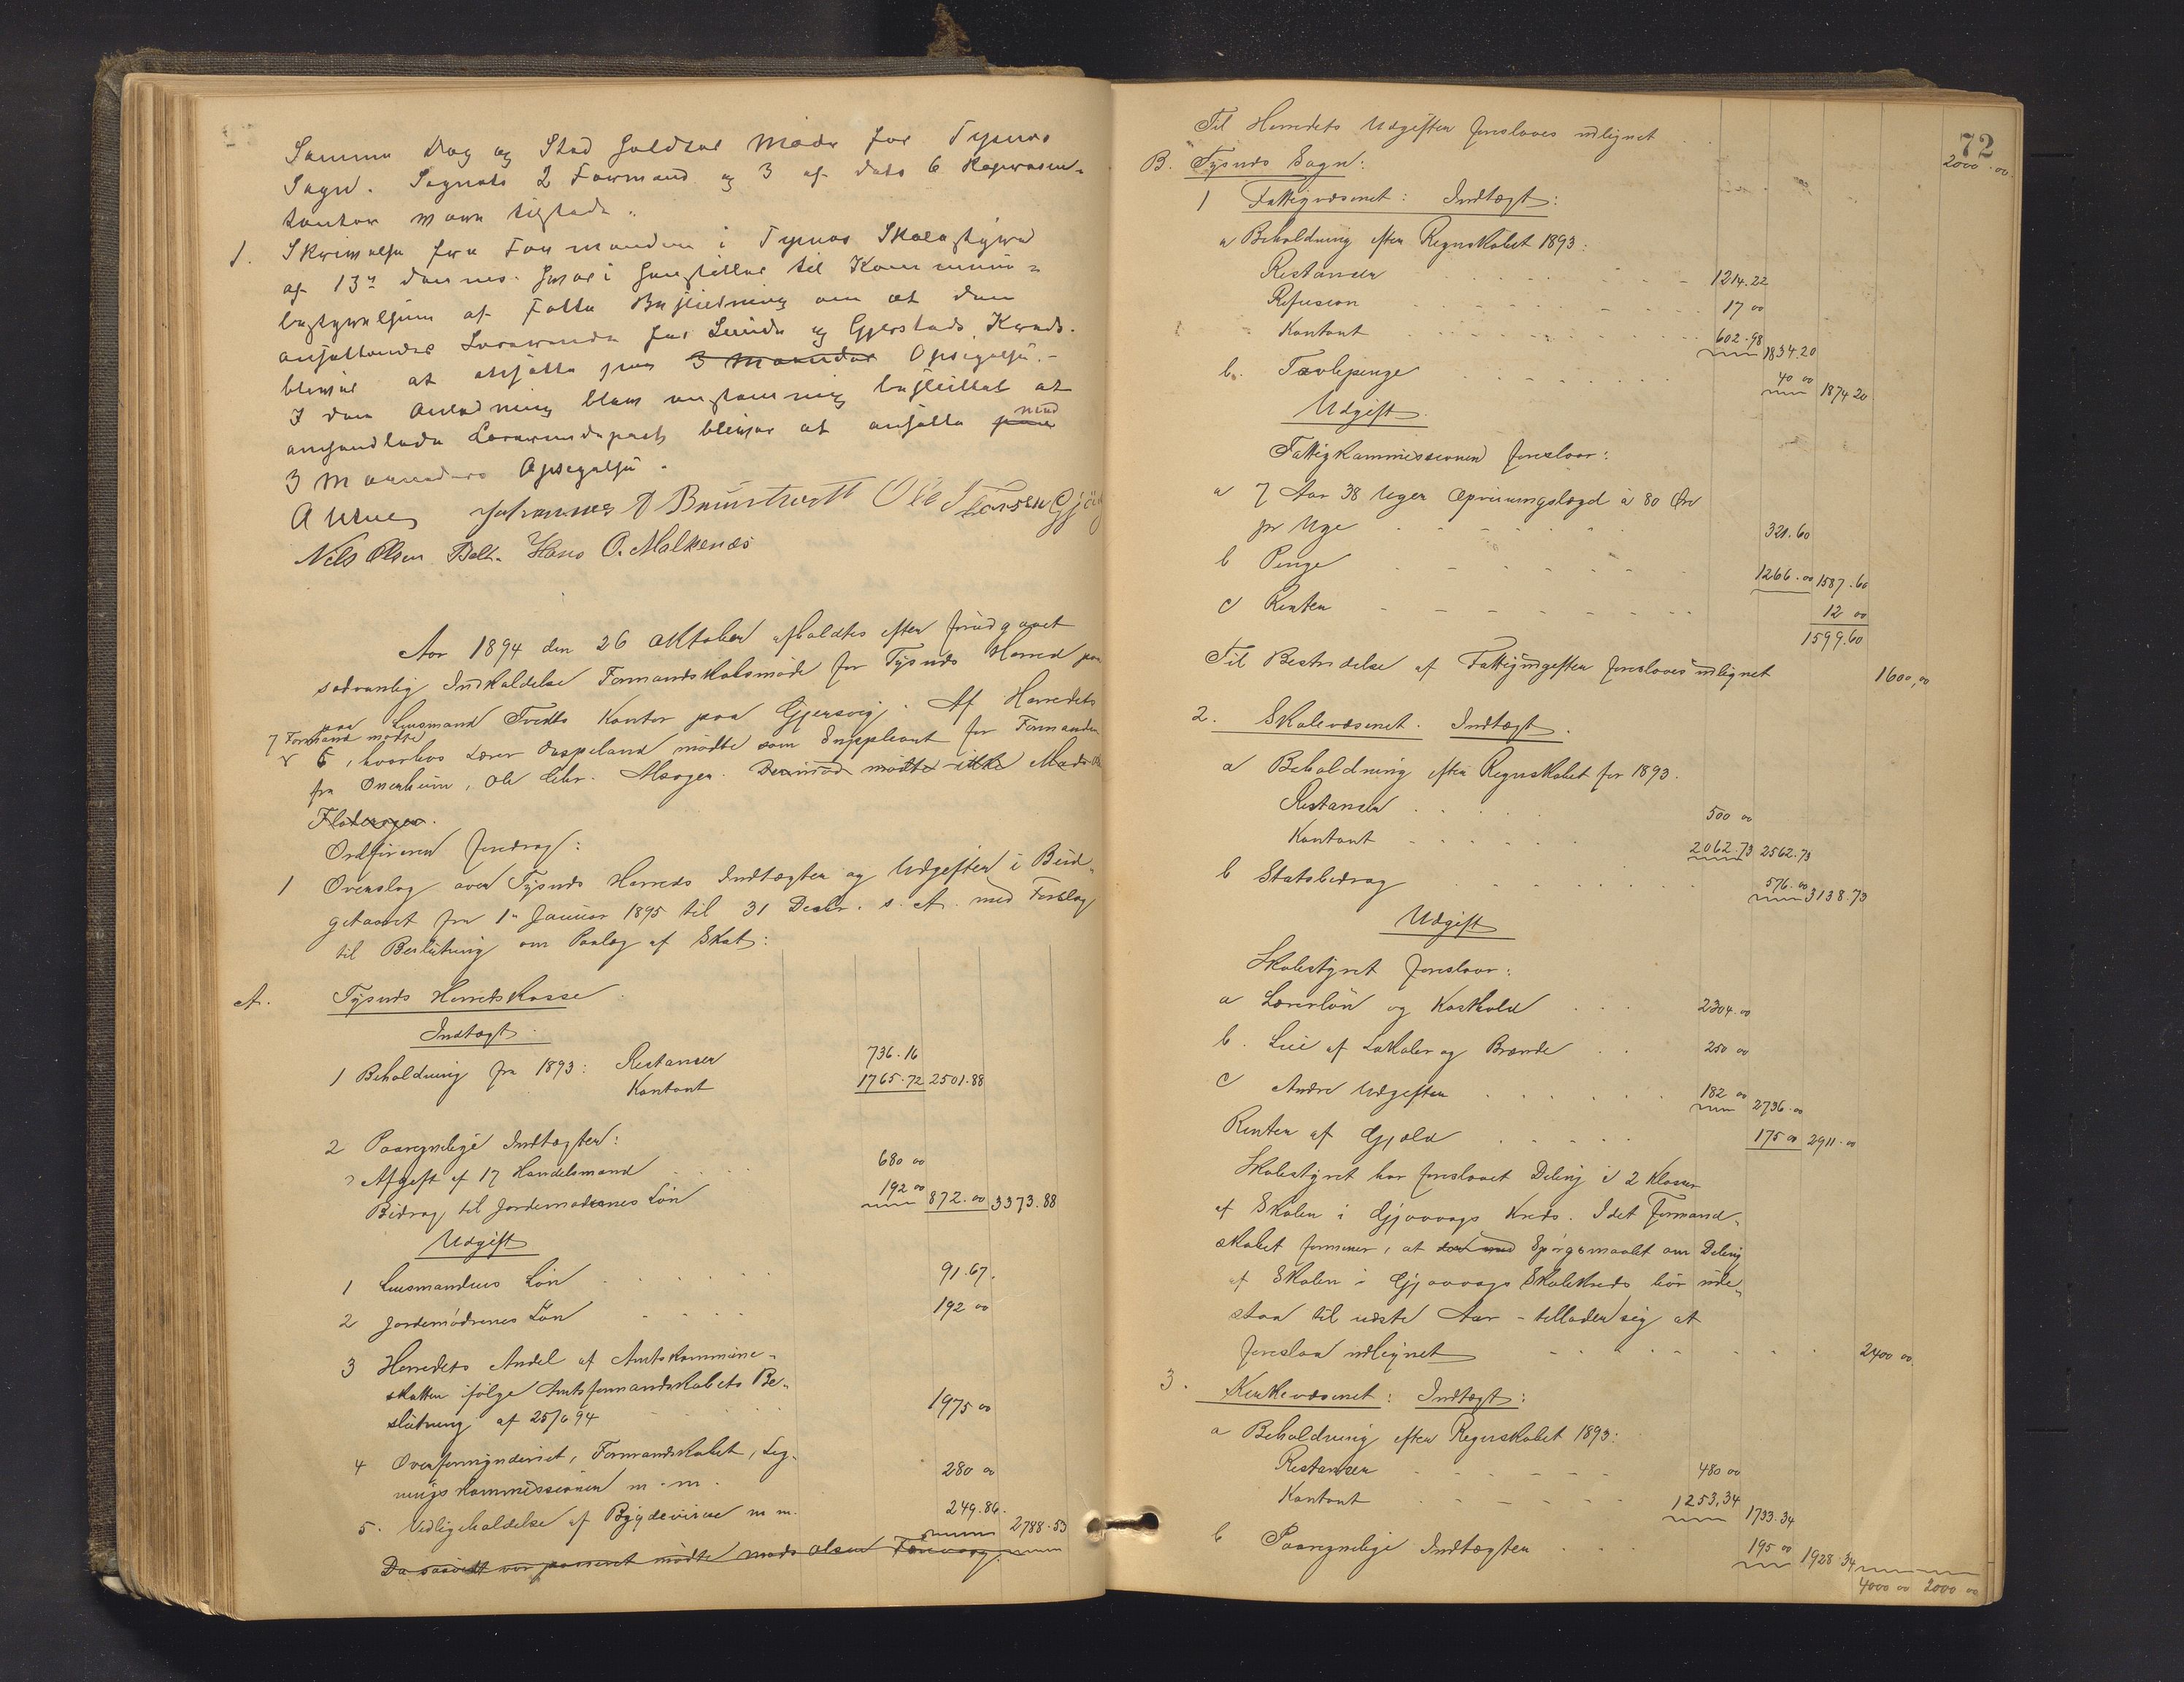 Samme Dag og Sted holdtes Møde for Tysnes
Sogn. Sognets 2 Formænd og 3 af dets 6 Repræsen-
tanter vare tilstede.
1. Skrivelse fra Formanden i Tysnes Skolestyre
af 13de dennes hvori henstilles til Kommune-
bestyrelsen at fatte Beslutning om at den
ansættendes Læreinde for Lunde og Gjerstads Kreds
bliver at ansætte paa 3 Maaneders Opsigelse.
I den Anledning blev enstemmig besluttet at
omhandlede Lærerindepost bliver at ansætte paa med
3 Maaneders Opsigelse.
Johannes Ole Larsen
Nils Olsen Hans O. Malkenæs
Aar 1894 den 26 Oktober afholdtes efter foregaaet
sedvanlig Indkaldelse Formandskabsmøde for Tysnes Herred paa
paa Lensmand Tvedts Kontor paa Gjersvig. Af Herredets
7 Formænd mødte
6, hvorhos Lærer mødte som Suppleant for Formanden
fra Onarheim, Ole Chr. Derimod mødte ikke Mads
Ordføreren foredrog:
1 Overslag over Tysnes Herreds Indtægter og Udgifter i Bud-
getaaret fra 1ste Januar 1895 til 31 Decbr. s. A. med Forslag
til Beslutning om Paalæg af Skat:
A. Tysnes Herredskasse
Indtægt
1 Beholdning fra 1893: Restancer 736.16
Kontant 1765.72 2501.88
2 Paaregnelige Indtægter:
Afgift af 17 Handelsmænd 680 00
Bidrag til Jordemødrenes Løn 192 00 872.00 3373.88
Udgift
1 Lensmandens Løn 91.67.
2 Jordemødrenes Løn 192 00
3 Herredets Andel af Amtskommune-
skatten ifølge Amtsformandskabets Be-
slutning af 25/6 94 1975 00
4 Overformynderiet, Formandskabet, Lig-
ningskommissionen m.m. 280 00
5. Vedligeholdelse af Bygdeveiene m m. 249.86. 2788.53
Da saavidt var passeret mødte Mads Olsen
72
Til Herredets Udgifter foreslaaes udlignet 2000.00.
B. Tysnes Sogn:
1 Fattigvæsenet: Indtægt:
a Beholdning efter Regnskabet 1893:
Restancer 1214.22
Refusion 17 00
Kontant 602.98 1834.20
b. Tavlepenge 40 00 1874 20
Udgift
Fattigkommissionen foreslaar:
a 7 Aar 38 Uger Opviningslægd à 80 Øre
pr Uge 321.60
b Penge 1266.00 1587.60
c Renter 12 00
1599.60
Til Bestridelse af Fattigudgifter foreslaaes udlignet 1600,00
2. Skolevæsenet. Indtægt.
a Beholdning efter Regnskabet for 1893.
Restancer 500 00
Kontant 2062.73 2562.73
b Statsbidrag 576.00 3138.73
Udgift
Skolestyret foreslaar:
a Lærerløn og Kosthold 2304.00
b. Leie af Lokaler og Brænde 250 00
c Andre Udgifter 182 00 2736.00
Renter af Gjæld 175 00 2911.00
Skolestyret har foreslaaet Deling i 2 Klasser
af Skolen i Gjøvaags Kreds. Idet Formand-
skabet formener, at Spørgsmaalet om Deling
af Skolen i Gjøvaags Skolekreds bør ude-
staa til næste Aar - tillader sig at
foreslaa udlignet 2400 00.
3. Kirkevæsenet: Indtægt:
a Beholdning efter Regnskabet 1893:
Restancer 480 00
Kontant 1253,34 1733.34
b Paaregnelige Indtægter 195 00 1928.34
4000 00 2000 00